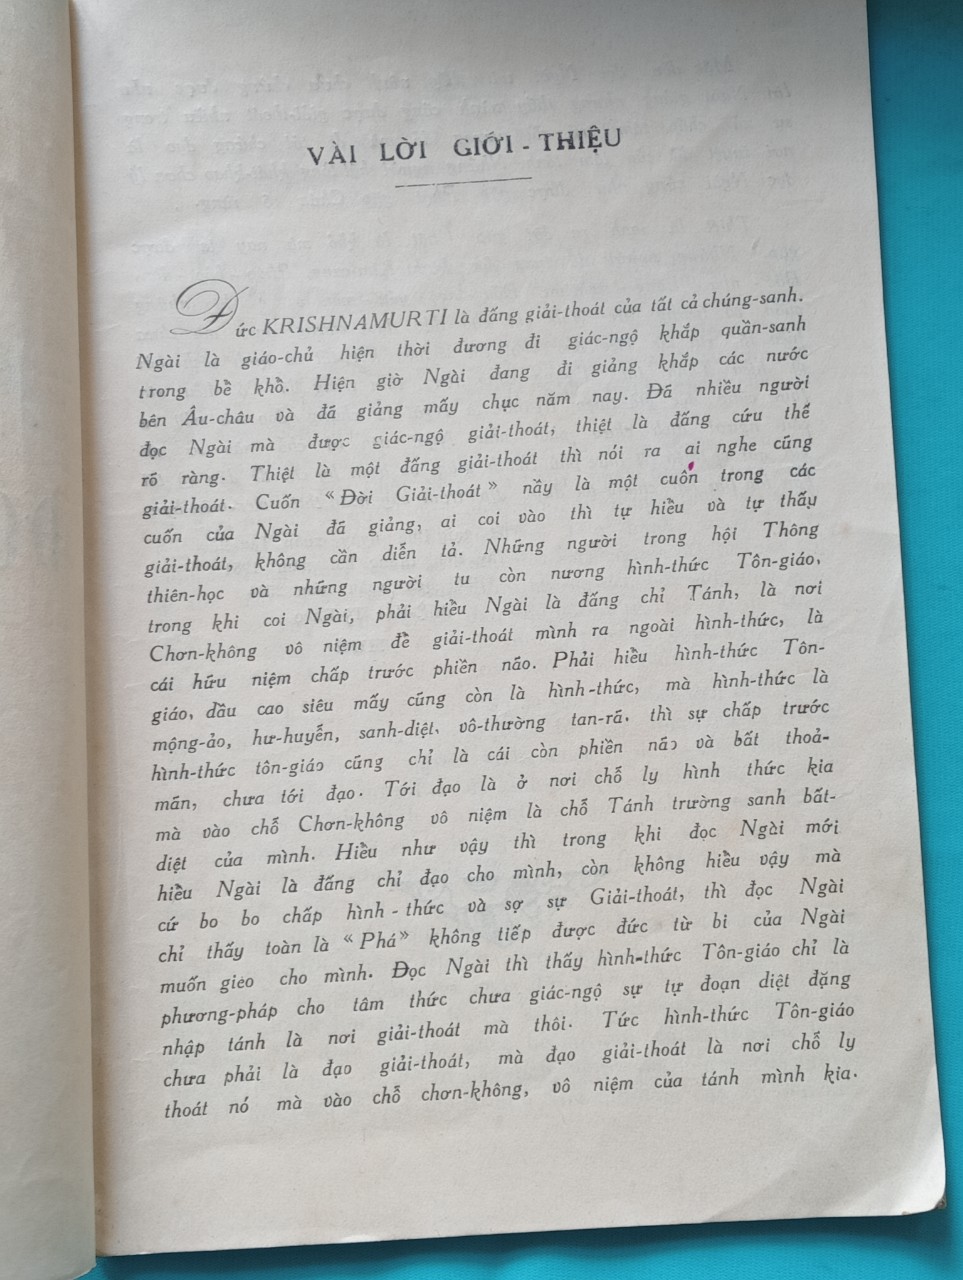 VÀI LỜI GIỚI-THIỆU
Đức KRISHNAMURTI là đấng giải-thoát của tất cả chúng-sanh.
Ngài là giáo-chủ hiện thời đương đi giác-ngộ khắp quần-sanh
trong bề khổ. Hiện giờ Ngài đang đi giảng khắp các nước
bên Âu-châu và đã giảng mấy chục năm nay. Đã nhiều người
đọc Ngài mà được giác-ngộ giải-thoát, thiệt là đấng cứu thế
rõ ràng. Thiệt là một đấng giải-thoát thì nói ra ai nghe cũng
giải-thoát. Cuốn «Đời Giải-thoát» nầy là một cuốn trong các
cuốn của Ngài đã giảng, ai coi vào thì tự hiểu và tự thấy
giải-thoát, không cần diễn tả. Những người trong hội Thông
thiên-học và những người tu còn nương hình-thức Tôn-giáo,
trong khi coi Ngài, phải hiểu Ngài là đấng chỉ Tánh, là nơi
Chơn-không vô niệm để giải-thoát mình ra ngoài hình-thức, là
cái hữu niệm chấp trước phiền não. Phải hiểu hình-thức Tôn-
giáo, dầu cao siêu mấy cũng còn là hình-thức, mà hình-thức là
mộng-ảo, hư-huyễn, sanh-diệt, vô-thường tan-rã, thì sự chấp trước
hình-thức tôn-giáo cũng chỉ là cái còn phiền não và bất thoả-
mãn, chưa tới đạo. Tới đạo là ở nơi chỗ ly hình thức kia
mà vào chỗ Chơn-không vô niệm là chỗ Tánh trường sanh bất-
diệt của mình. Hiểu như vậy thì trong khi đọc Ngài mới
hiểu Ngài là đấng chỉ đạo cho mình, còn không hiểu vậy mà
cứ bo bo chấp hình-thức và sợ sự Giải-thoát, thì đọc Ngài
chỉ thấy toàn là «Phá» không tiếp được đức từ bi của Ngài
muốn gieo cho mình. Đọc Ngài thì thấy hình-thức Tôn-giáo chỉ là
phương-pháp cho tâm thức chưa giác-ngộ sự tự đoạn diệt đặng
nhập tánh là nơi giải-thoát mà thôi. Tức hình-thức Tôn-giáo
chưa phải là đạo giải-thoát, mà đạo giải-thoát là nơi chỗ ly
thoát nó mà vào chỗ chơn-không, vô niệm của tánh mình kia.